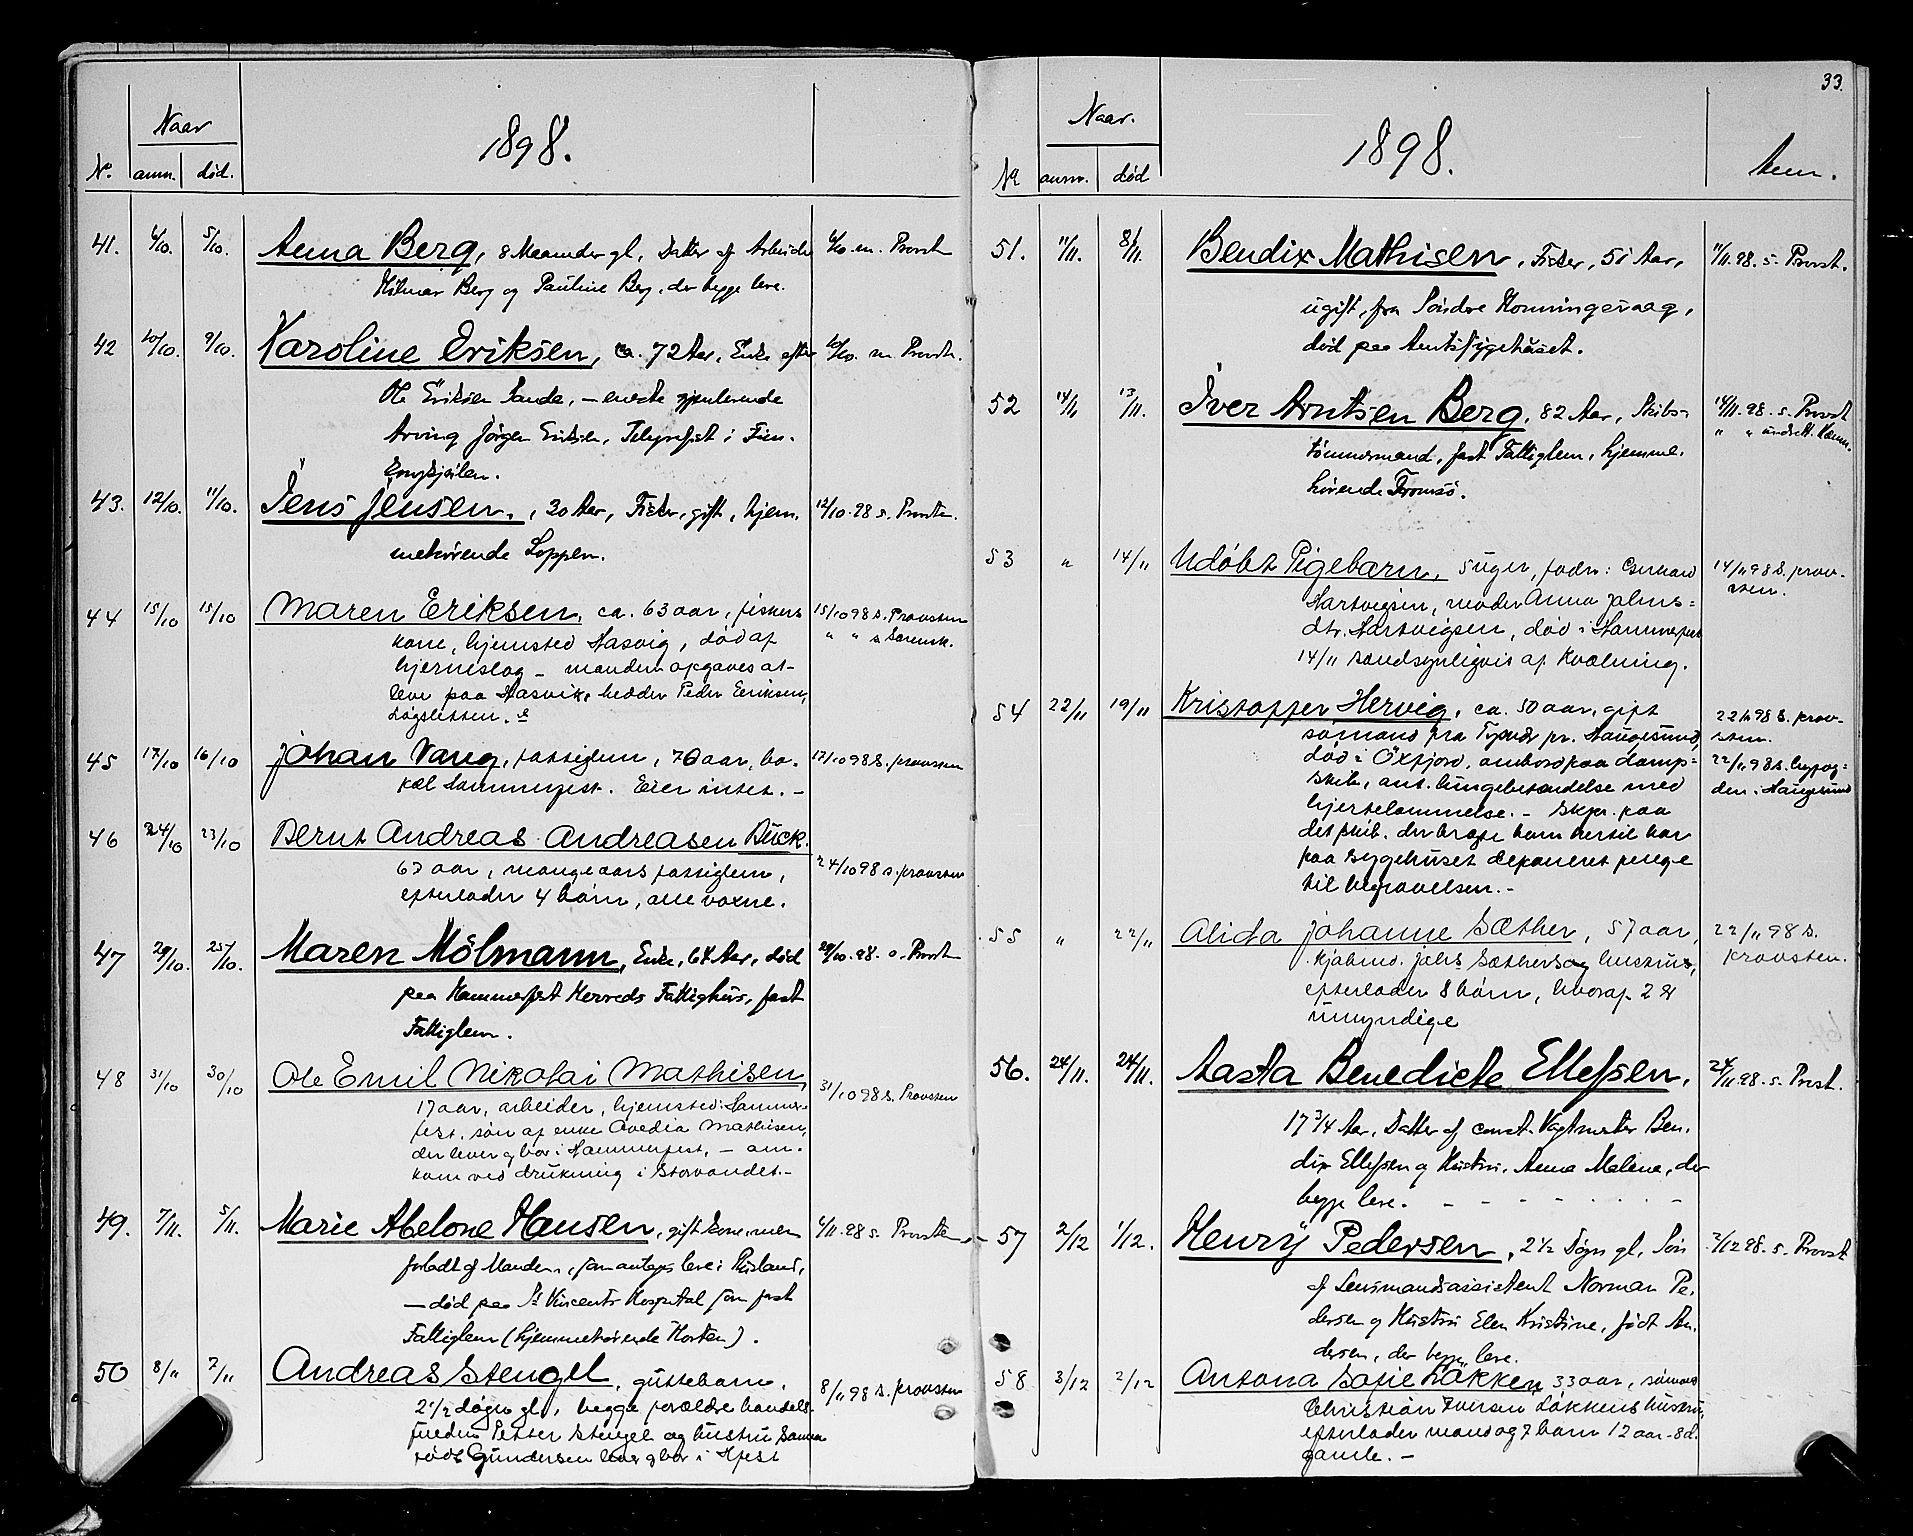 Naar
1898.
No. anm. död.
41. 6/10. 5/10. Anna Berg, 8 Maaneder gl, Datter af Arbeider 6/10 m. Provst
Hilmar Berg og Pauline Berg, der begge leve.
42 10/10. 9/10. Karoline Eriksen, ca. 72 Aar, Enke efter 10/10. m. Provst.
Ole Eriksen Sande, – eneste gjenlevende
Arving Jörgen Eriksen, Telegrafist i Fin-
43. 12/10. 11/10. Jens Jensen, 30 Aar, Fisker, gift, hjem- 12/10.98 s. Provsten.
mehörende Loppen.
44 15/10 15/10 Maren Eriksen, ca. 63 aar, fiskers 15/10 98 s. Provsten
kone, hjemsted Hasvig, död af " " s Sorensk.
hjerneslag – manden opgaves at
leve paa Hasvik, hedder Peder Eriksen,
45 17/10 16/10 Johan Vang, fattiglem, 70 aar, lo- 17/10 98 s. provsten
kal Hammerfest. Eier intet. –
46 24/10 23/10 Bernt Andreas Andreasen Buck.
63 aar, mangeaars fattiglem, 24/10 98 s. provsten
efterlader 4 börn, alle voxne.
47 29/10. 25/10. Maren Mölmann, Enke, 64 Aar, död 29/10.98. s. Provst
paa Hammerfest Herreds Fattighus, fast
Fattiglem.
48 31/10 30/10 Ole Emil Nikolai Mathisen, 31/10 98 s. Provsten
17 aar, arbeider, hjemsted: Hammer-
fest, sön af enke Avedia Mathisen,
der lever og bor i Hammerfest, – om-
kom ved drukning i Storvandet –
49. 7/11. 5/11. Marie Abelone Hansen, gift Kone, men 6/11.98 s. Provsten
forladt af Manden, som antages leve i Rusland,
– död paa St Vincents Hospital som fast
Fattiglem (hjemmehörende Horten).
50 8/11 7/11 Andreas Stengel, guttebarn, 8/11 98 s. provsten
2 1/2 dögn gl, begge forældre handels-
födt Gundersen lever og bor i Hfest
33.
Naar.
1898.
No anm. död Anm.
51. 11/11. 8/11. Bendix Mathisen, Fisker, 51 Aar, 11/11.98. s. Provst.
ugift, fra Söndre Honningsvaag,
död paa Amtssygehuset.
52 14/11 13/11. Iver Arntsen Berg, 82 Aar, Skibs- 14/11.98. s. Provst
tömmermand, fast Fattiglem, hjemme-
hörende Tromsö.
53 " 14/11 Udöbt Pigebarn, 5 uger, fader: Gerhard 14/11 98 s. prov-
Hartvigsen, moder Anna Johns= sten.
dtr. Hartvigsen, död i Hammerfest
14/11 sandsynligvis af kvælning.
54 22/11 19/11 Kristoffer Hervig, ca. 50 aar, gift 22/11 98 s. prov-
sömand fra Tysvær pr. Haugesund, sten.
död i Öxfjord, ombord paa damp= 22/11 98 s. byfog=
skib, ant. lungebetændelse med den i Haugesund
hjertelammelse. – Skpr. paa
det skib, der bragte ham hertil har
paa sygehuset deponeret penge
til begravelsen. –
55 " 22/11 Alida Johanne Sæther, 57 aar, 22/11 98 s.
kjöbmd. Johs Sæthersog hustru, provsten.
efterlader 8 börn, hvoraf 2 er
umyndige
56. 24/11. 24/11. Aasta Benedicte Ellefsen, 24/11.98. s. Provst.
17 3/4 Aar, Datter af const. Vagtmester Ben-
dix Ellefsen og Hustru, Anna Malene, der
begge leve. – – – – – – –
57 2/12 1/12. Henry Pedersen, 2 1/2 Dögn gl, Sön 2/12 98. s. Provst
af Lensmandsassistent Norman Pe-
dersen og Hustru Elen Kristine, födt An-
dersen, der begge leve.
58 3/12 2/12 Antona Sofie Løkken, 33 aar, sömand
Christian Iversen Lökkens hustru,
efterlader mand og 7 barn 12 aar - 8 d.
gamle. –